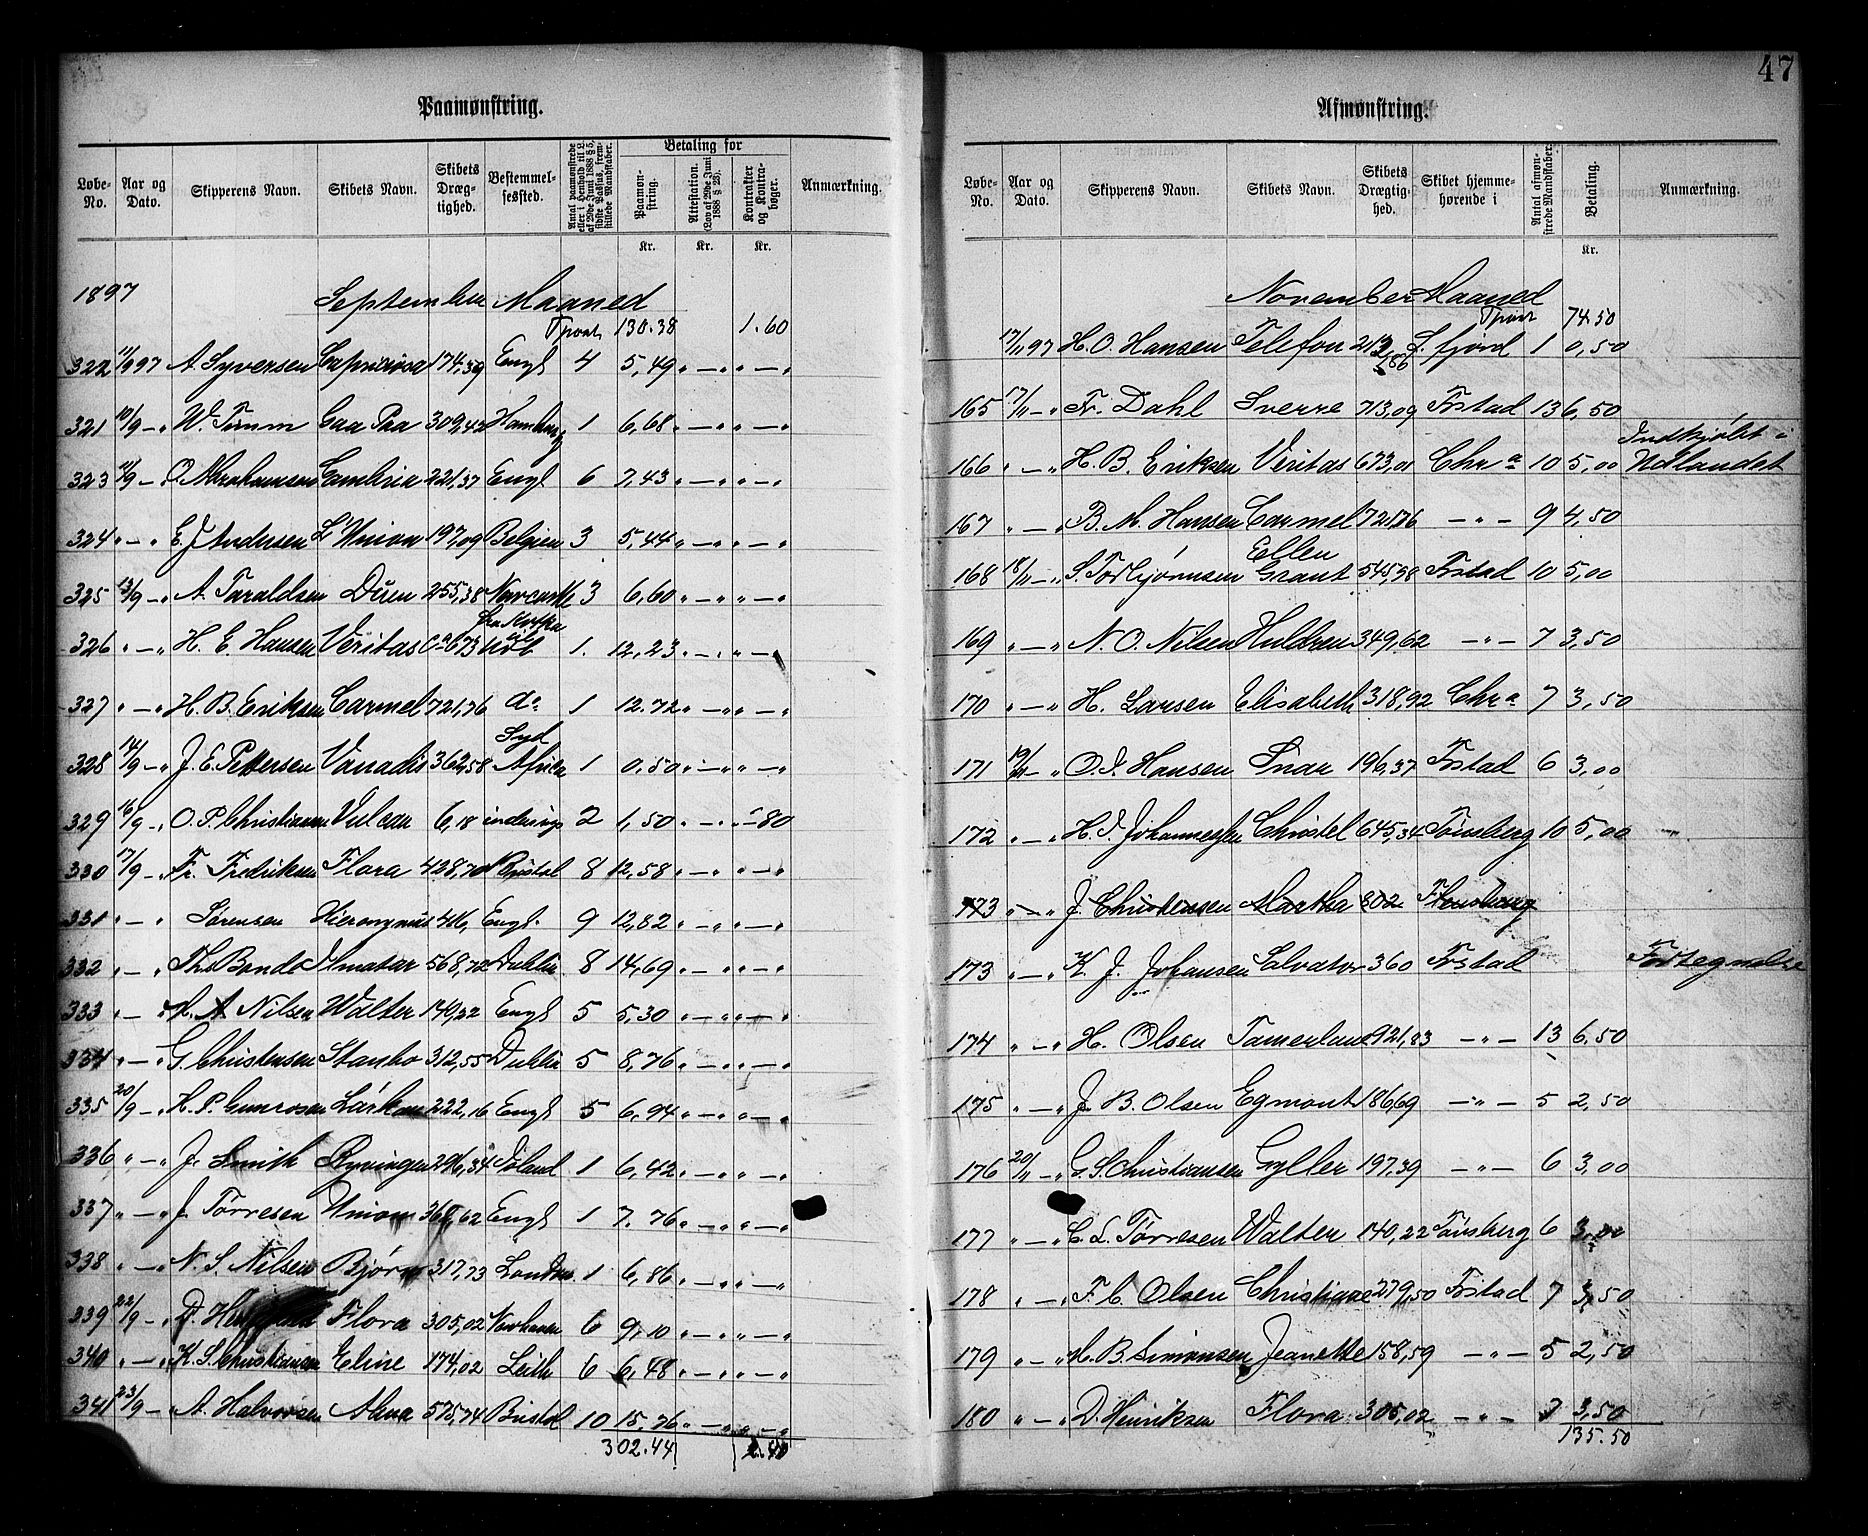 47
Paamønstring.
Løbe-No. Aar og Dato. Skipperens Navn. Skibets Navn. Skibets Dræg-tighed. Bestemmel-sessted. Antal paamønstrede eller i Henhold til L. af 29de Juni 1888 § 5, sidste Passus, frem-stillede Mandskaber. Betaling for Paamøn-string. Attestation. (Lov af 29de Juni 1888 § 23). Kontrakter og Kontra-bøger. Anmærkning.
Kr. Kr. Kr.
1897 September Maaned
Tpart 130.38 1.60
322 11/9 97 A. Syversen Capriciosa 174,59 Engl 4 5,49 " — " " — "
321 10/9 — " W. Timm Caa Paa 309,42 Hamburg 1 6,68 " — " " — "
323 11/9 — " O. Abrahamsen Cambria 221,37 Engl 6 7,43 " — " " — "
324 " — " E. J. Andersen L'Union 197,09 Belgien 3 5,44 " — " " — "
325 13/9 — " A. Taraldsen Duen 255,38 Newcastle 3 6,60 " — " " — "
326 " — " H. E. Hansen Veritas 673 1. 12,23 " — " " — "
327 " — " H. B. Eriksen Carmel 721,76 do 1 12.72 " — " " — "
328 14/9 — " J. E. Pettersen Vanadis 362,58 Syd Afrika 1 0,50 " — " " — "
329 16/9 — " O. P. Christiansen Vulcan 6,18 indenrigs 2 1,50 " — " " — 80
330 17/9 — " Fr. Fredriksen Flora 428,70 Bristol 8 12,58 " — " " — "
331 " — " Sørensen Hieronymus 416, Engl. 9 12,82 " — " " — "
332 " — " Ths Bande Ilmatar 568,72 Dublin 8 14,69 " — " " — "
333 " — " H. A Nilsen Walter 140,22 Engl 5 5,30 " — " " — "
334 " — " G. Christensen Stanbo 312,55 Dublin 5 8,76 " — " " — "
335 20/9 — " H. P. Gunrosen 222,16 Engl 5 6,94 " — " " — "
336 " — " J. Smith Ryvingen 296,34 1 6,42 " — " " — "
337 " — " J. Tørresen Union 368,62 Engl 1 7.76 " — " " — "
338 " — " N. S. Nilsen Bjørn 317,73 London 1 6,86 " — " " — "
339 22/9 — " D. Flora 305,02 Newhaven 6 9,10 " — " " — "
340 " — " K. S. Christiansen Eline 174,02 Leith 6 6,48 " — " " — "
341 23/9 — " A. Halvorsen Alma 575,74 Bristol 10 15,76 " — " " — "
302.44 2.40
Afmønstring.
Løbe-No. Aar og Dato. Skipperens Navn. Skibets Navn. Skibets Drægtig-hed. Skibet hjemme-hørende i Antal afmøn-strede Mandskaber. Betaling. Anmærkning.
Kr.
November Maaned
Tpart 74.50
17/11 97 H. O. Hansen Telefon 212 L. fjord 1 0,50
165 17/11 — " Fr. Dahl Sverre 713,09 Frstad 13 6,50
166 " — " H. B. Eriksen Veritas 673,01 Chr a 10 5,00 Indkjøbt i Udlandet
167 " — " B. M. Hansen Carmel 721,76 — " — 9 4,50
168 18/11 — " S. Torbjørnsen Ellen Grant 545,98 Frstad 10 5,00
169 " — " N. O. Nilsen Huldren 349,62 — " — 7 3,50
170 " — " H. Larsen Elisabeth 318,92 Chr a 7 3,50
171 19/11 — " O. J. Hansen Snar 196,37 Frstad 6 3,00
172 " — " H. J. Johannessen Christel 645,34 Tønsberg 10 5,00
173 " — " J. Christensen Martha 802
173 " — " K. J. Johansen Salvator 360 Frstad Fortegnelse
174 " — " H. Olsen Tamerlane 921,83 — " — 13 6.50
175 " — " J. B. Olsen Egmont 186,69 — " — 5 2,50
176 20/11 — " G. S. Christiansen Gyller 197,39 — " — 6 3,00
177 " — " C. L. Tørresen Walter 140,22 Tønsberg 6 3,00
178 " — " F. C. Olsen Christiane 279,50 Frstad 7 3,50
179 " — " H. B. Simonsen Jeanette 158,59 — " — 5 2,50
180 " — " D. Henriksen Flora 305,02 — " — 7 3,50
135.50